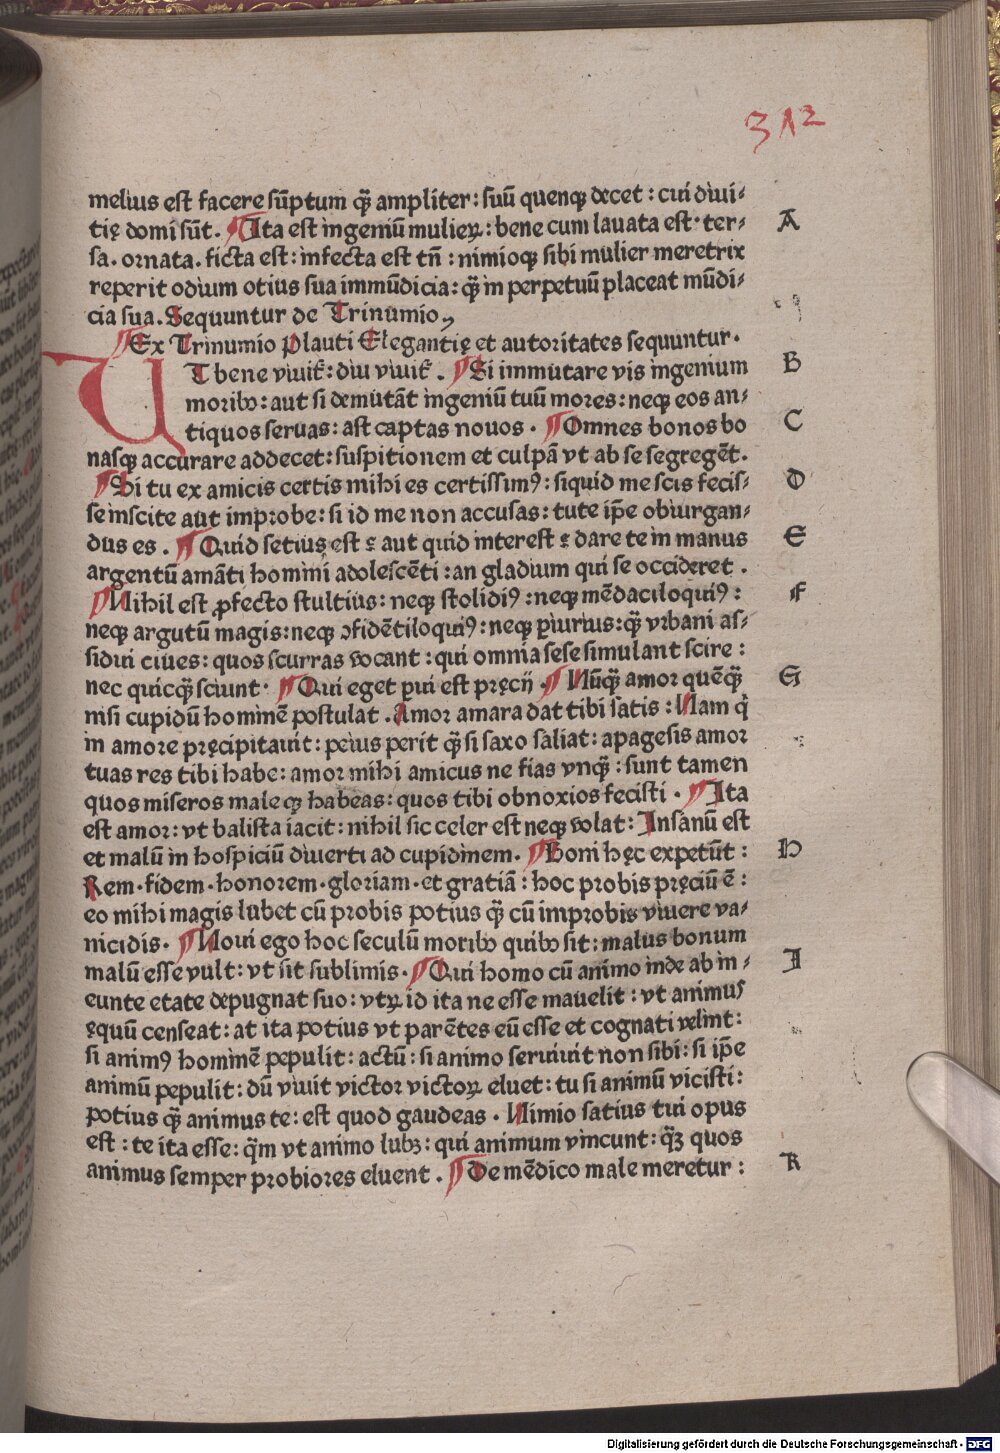 312
melius est facere sūptum qƺ̄ ampliter: suū quenqꝫ decet: cui diui⸗
tię domi sūt. ¶Ita est ingeniū mulieꝝ: bene cum lauata est· ter⸗ A
sa. ornata. ficta est: infecta est tn̄: nimioqꝫ sibi mulier meretrix
reperit odium otius sua immūdicia: qƺ̄ in perpetuū placeat mūdi⸗
cia sua. Sequuntur de Trinumio,
¶Ex Trinumio Plauti Elegantię et autoritates sequuntur.
UT bene viuiť: diu viuiť. ¶Si immutare vis ingenium B
moribꝰ: aut si demutāt ingeniū tuū mores: neqꝫ eos an⸗
tiquos seruas: ast captas nouos. ¶Omnes bonos bo C
nasqꝫ accurare addecet: suspitionem et culpā vt ab se segregēt.
¶Si tu ex amicis certis mihi es certissimꝰ: siquid me scis fecis⸗ D
se inscite aut improbe: si id me non accusas: tute ip̄e obiurgan⸗
dus es. ¶Quid setius est ꝛ aut quid interest ꝛ dare te in manus E
argentū amāti homini adolescēti: an gladium qui se occideret.
¶Nihil est ꝓfecto stultius: neqꝫ stolidiꝰ: neqꝫ mēdaciloquiꝰ: F
neqꝫ argutū magis: neqꝫ ↄfidētiloquiꝰ: neqꝫ ꝑiurius: qƺ̄ vrbani as⸗
sidui ciues: quos scurras vocant: qui omnia sese simulant scire:
nec quicqƺ̄ sciunt. ¶Qui eget ꝑui est pręcij. ¶Nūqƺ̄ amor quēqƺ̄ G
nisi cupidū hominē postulat. Amor amara dat tibi satis: Nam q̇
in amore pręcipitauit: peius perit qƺ̄ si saxo saliat: apagesis amor
tuas res tibi habe: amor mihi amicus ne fias vnqƺ̄: sunt tamen
quos miseros maleqꝫ habeas: quos tibi obnoxios fecisti. ¶Ita
est amor: vt balista iacit: nihil sic celer est neqꝫ volat: Insanū est
et malū in hospiciū diuerti ad cupidinem. ¶Boni hęc expetūt: H
Rem·fidem·honorem·gloriam·et gratiā: hoc probis pręciū ē:
eo mihi magis lubet cū probis potius qƺ̄ cū improbis viuere va⸗
nicidis. ¶Noui ego hoc seculū moribꝰ quibꝰ sit: malus bonum
malū esse vult: vt sit sublimis. ¶Qui homo cū animo inde ab in⸗ I
eunte etate depugnat suo: vtꝝ id ita ne esse mauelit: vt animus
ęquū censeat: at ita potius vt parētes eū esse et cognati velint:
si animꝰ hominē pepulit: actū: si animo seruiuit non sibi: si ip̄e
animū pepulit: dū viuit victor victoꝝ eluet: tu si animū vicisti:
potius qƺ̄ animus te: est quod gaudeas. Nimio satius tui opus
est: te ita esse: qƺ̄m vt animo lubꝫ: qui animum vincunt: qƺ̄ꝫ quos
animus semper probiores eluent. ¶De mēdico male meretur: K
Digitalisierung gefördert durch die Deutsche Forschungsgemeinschaft - DFG